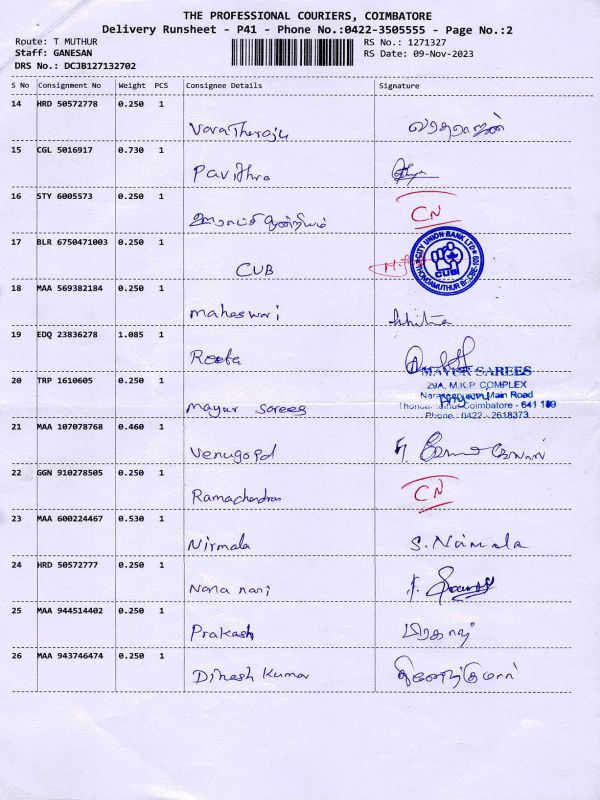 THE PROFESSIONAL COURIERS, COIMBATORE
Delivery Runsheet - P41 - Phone No.:0422-3505555 - Page No.:2
Route: T MUTHUR
RS No.: 1271327
Staff: GANESAN
RS Date: 09-Nov-2023
DRS No.: DCJB127132702
S No Consignment No Weight PCS Consignee Details Signature
14 HRD 50572778 0.250 1
15 CGL 5016917 0.730 1
Pavithra
16 STY 6005573 0.250 1
CN
17 BLR 6750471003 0.250 1
CITY UNION BANK LTD
THONDAMUTHUR Br. CBE
CUB
18 MAA 569382184 0.250 1
maheswari
19 EDQ 23836278 1.085 1
Reeta
20 TRP 1610605 0.250 1
MAYUR SAREES
29A, M.K.P. COMPLEX
Main Road
Coimbatore - 641 109
Phone : 0422 - 2618373
mayur sarees
21 MAA 107078768 0.460 1
Venugopal
22 GGN 910278505 0.250 1
Ramachandran CN
23 MAA 600224467 0.530 1
Nirmala S. Nirmala
24 HRD 50572777 0.250 1
Nana nani
25 MAA 944514402 0.250 1
Prakash பிரகாஷ்
26 MAA 943746474 0.250 1
Dinesh Kumar தினேஷ்குமார்